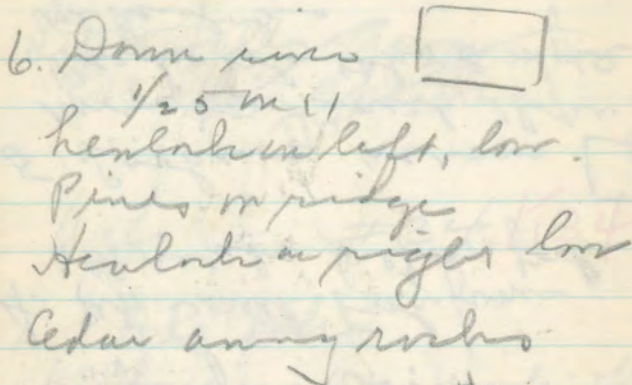 6. Down river
1/25 m 11
hemlock on left, low.
Pines on ridge
Hemlock on right low
Cedar among rocks